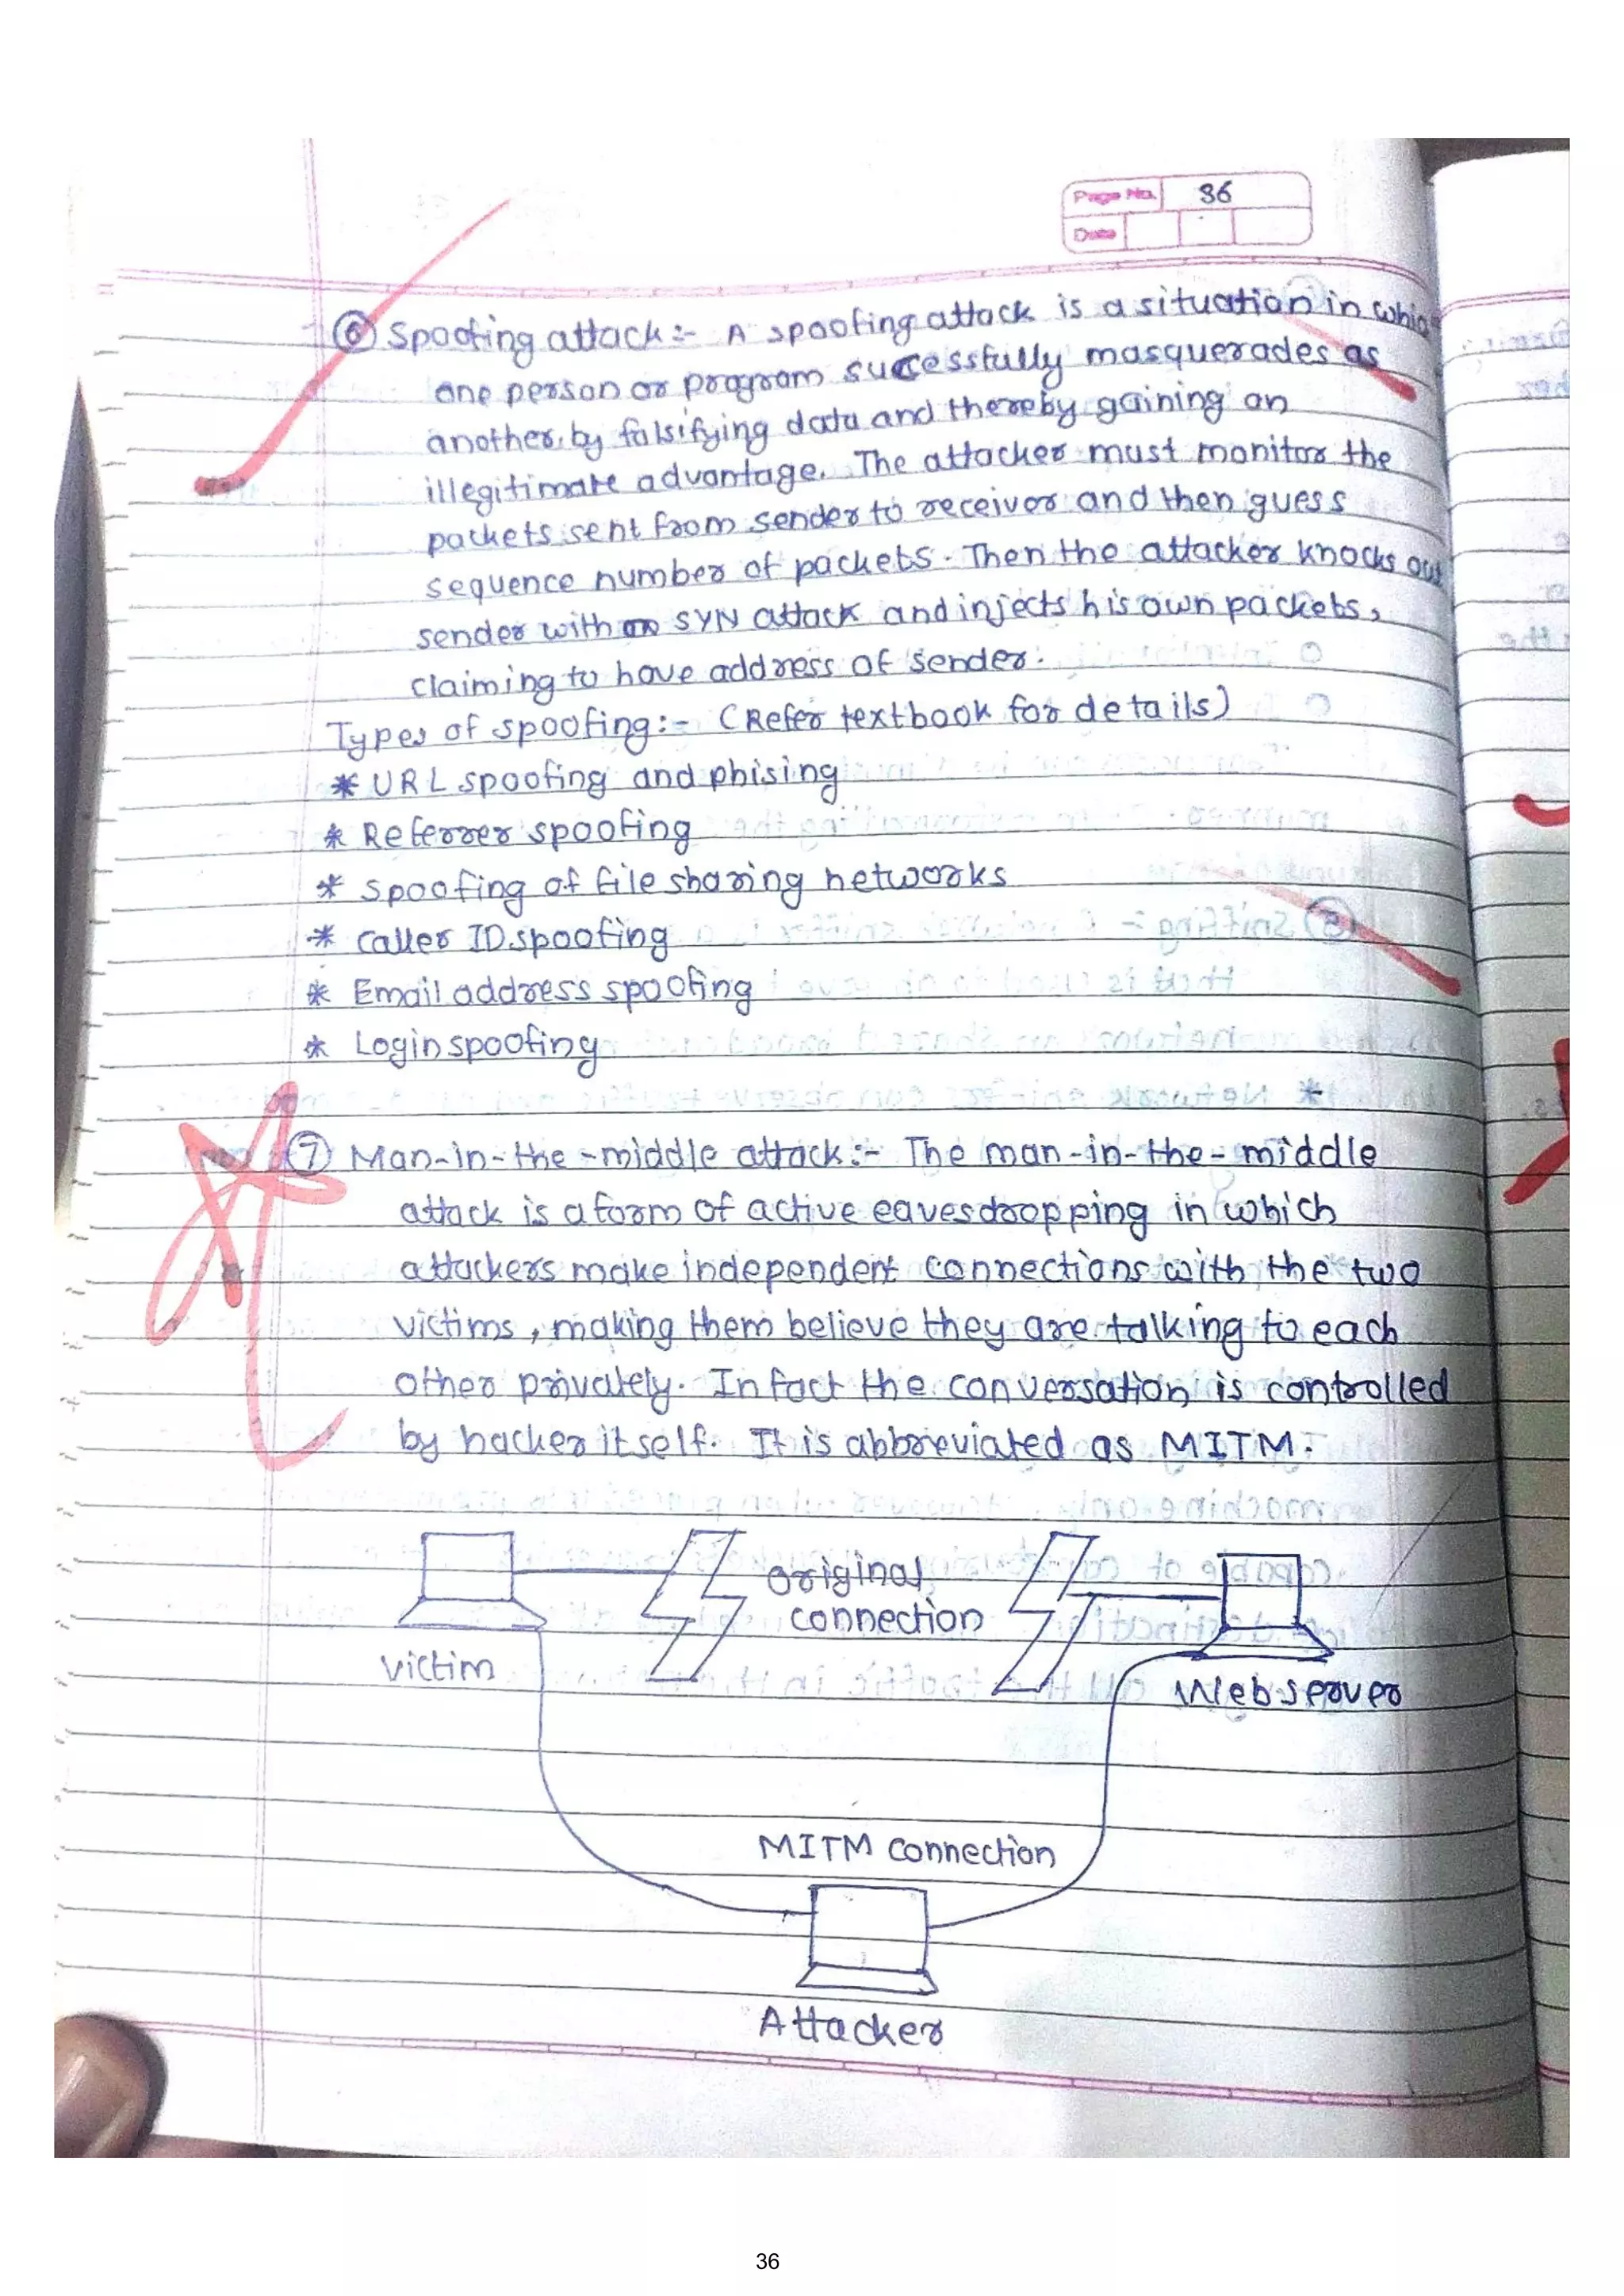 Page No. 36
Date
⑥ Spoofing attack :- A spoofing attack is a situation in which
one person or program successfully masquerades as
another by falsifying data and thereby gaining an
illegitimate advantage. The attacker must monitor the
packets sent from sender to receivor and then guess
sequence number of packets. Then the attacker knocks out
sender with SYN attack and injects his own packets,
claiming to have address of sender.
Types of spoofing :- (Refer textbook for details)
* URL spoofing and phising
* Referrer spoofing
* Spoofing of file sharing networks
* Caller ID spoofing
* Email address spoofing
* Login spoofing
⑦ Man-in-the-middle attack :- The man-in-the-middle
attack is a form of active eavesdropping in which
attackers make independent connections with the two
victims, making them believe they are talking to each
other privately. In fact the conversation is controlled
by hacker itself. It is abbreviated as MITM.
Original
connection
Victim
Webserver
MITM Connection
Attacker
36